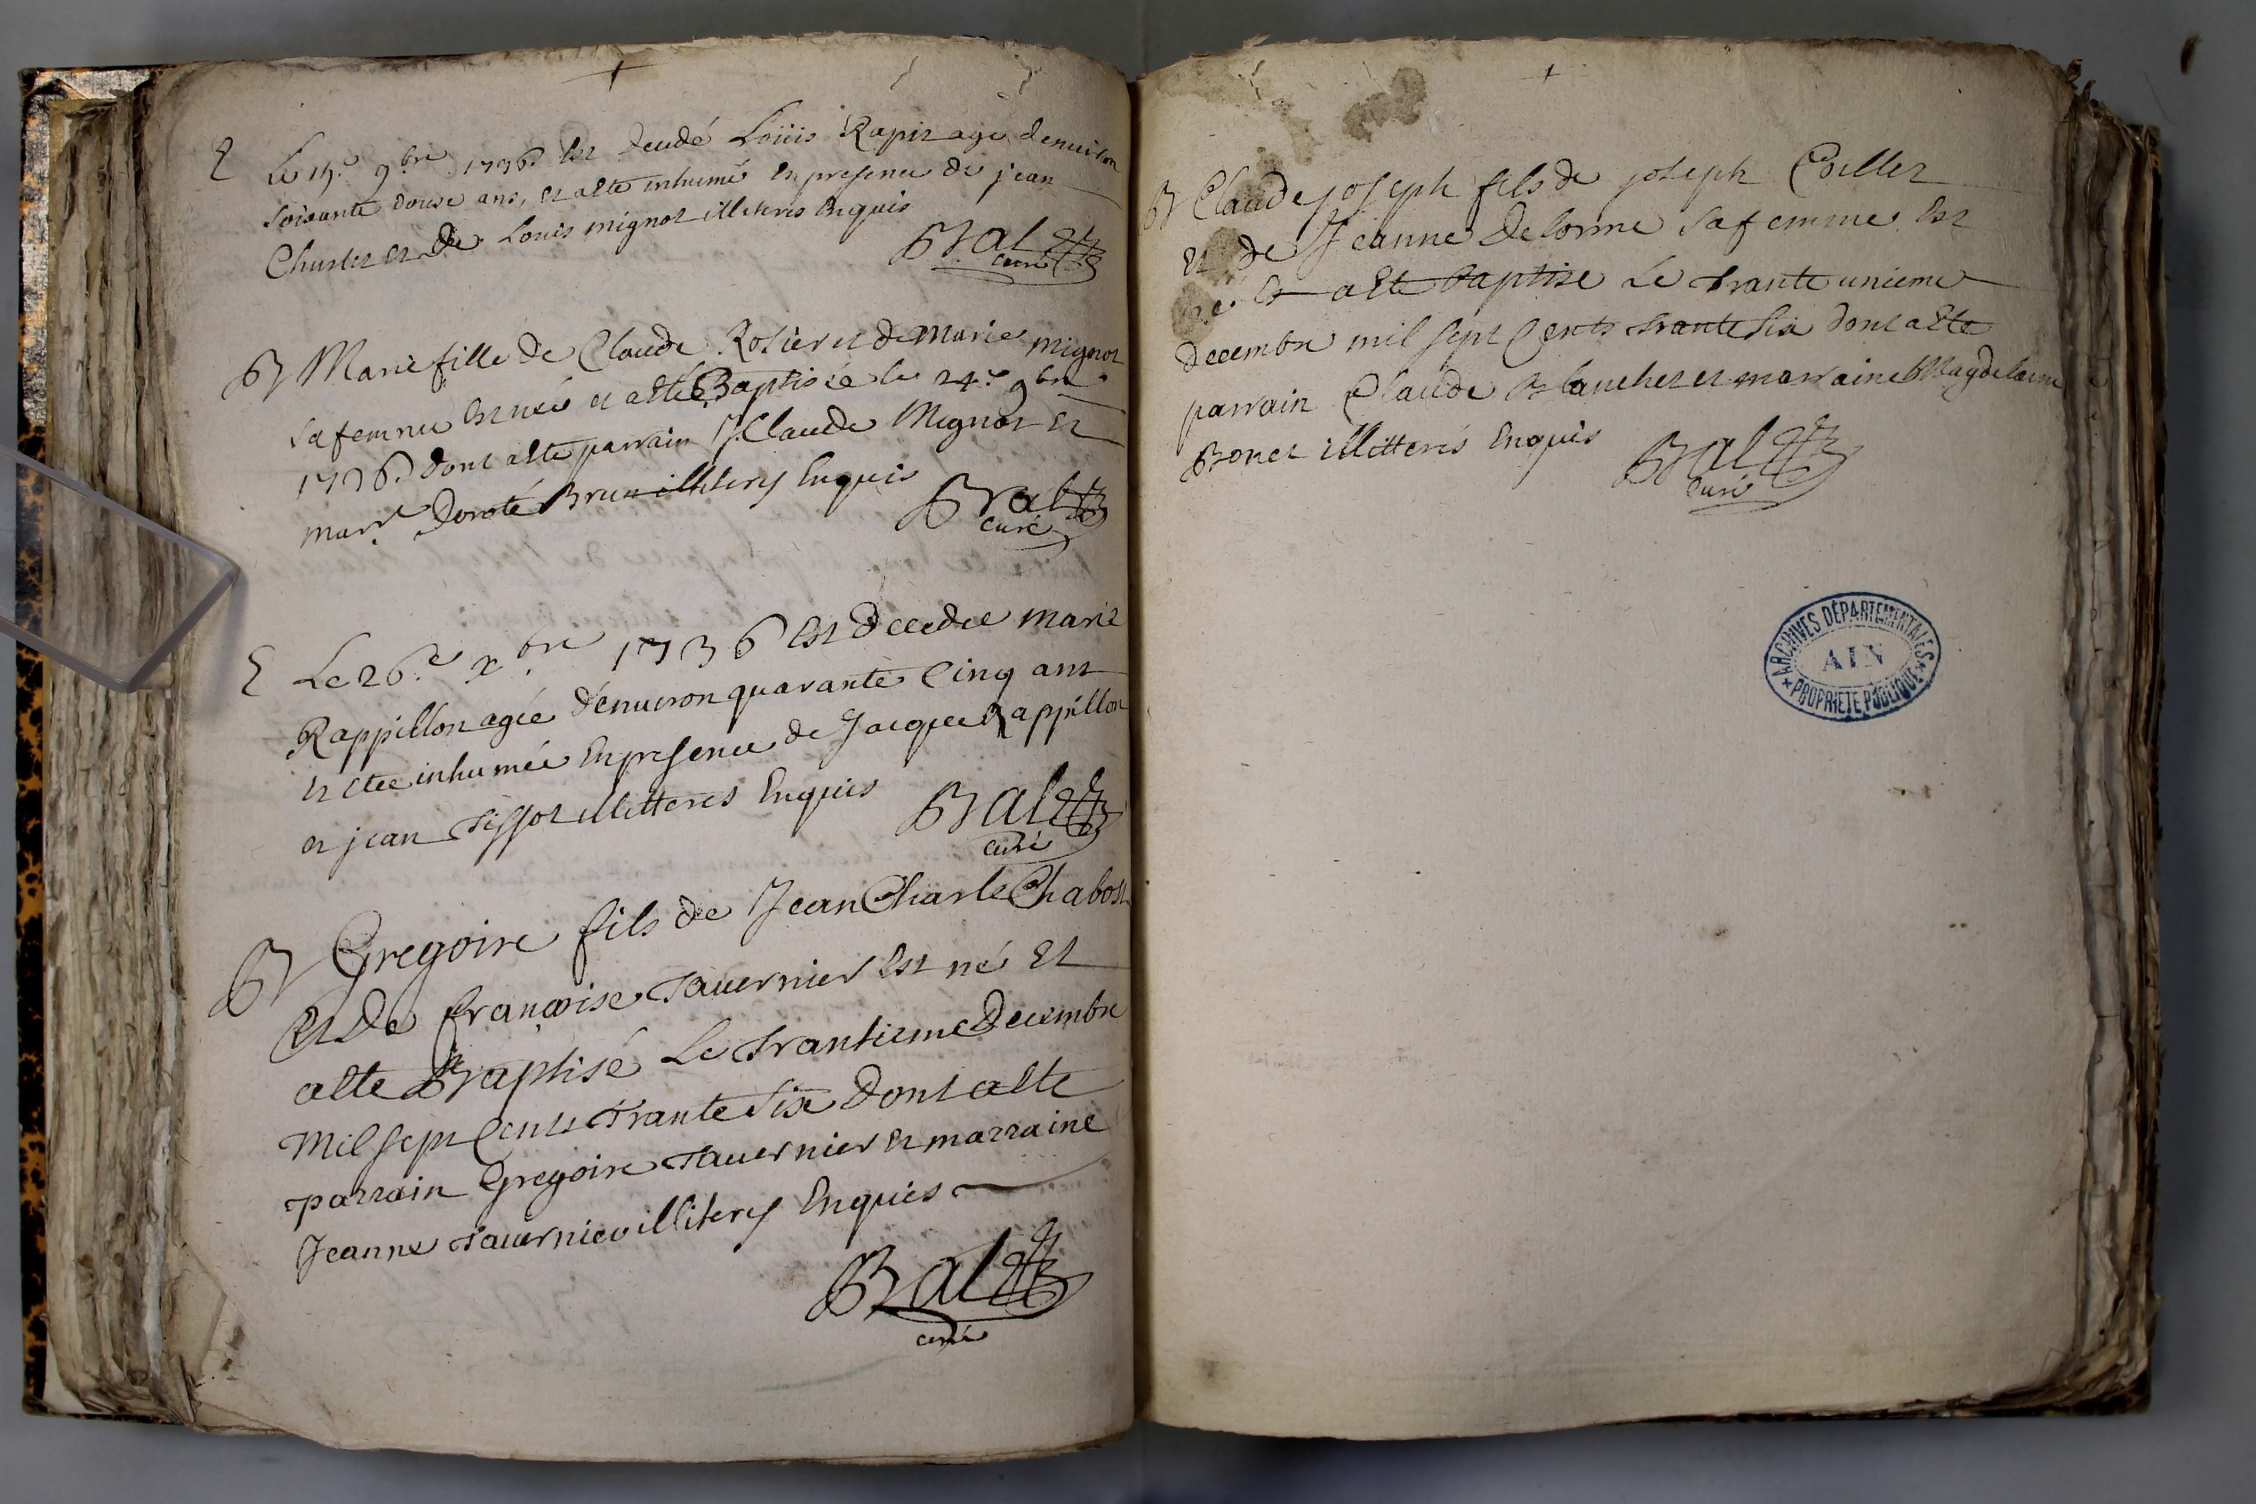 E Le 15.e 9bre 1736. Est decedé Loüis Rapit agé denuiron
soixante douse ans, et a esté inhumé En presence de jean
Churlet et de Louis mignot illiterés Enquis
Balet
curé
B Marie fille de Claude Rosier et de marie mignot
sa femme Est née et a esté Baptisée le 24.e 9bre
1736. dont a esté parrain J. Claude Mignot Et
marr.e Doroté Brun illiterés Enquis
Balet
curé
E Le 26.e xbre 1736 Est decedee marie
Rappillon agée d'enuiron quarante Cinq ans
Et etee inhumée En presence de Jacque Rappillon
et jean Tissot illitterés Enquis
Balet
curé
B Gregoire fils de Jean Charle Chabost
Et De francoise Tauernier Est né Et
a esté Baptisé Le Trantieme Decembre
mil sept Cents Trante Six Dont a esté
parrain Gregoire Tauernier et marraine
Jeanne Tauernier illiterés Enquis
Balet
curé
B Claude joseph fils de joseph Coillet
Et de Jeanne Delorme sa femme Est
né. Et a esté Baptise Le Trante unieme
decembre mil sept Cents Trante six dont a esté
parrain Claude Blanchet et marraine Magdelaine
Bonet illitterés Enquis
Balet
curé
ARCHIVES DÉPARTEMENTALES
AIN
PROPRIÉTÉ PUBLIQUE